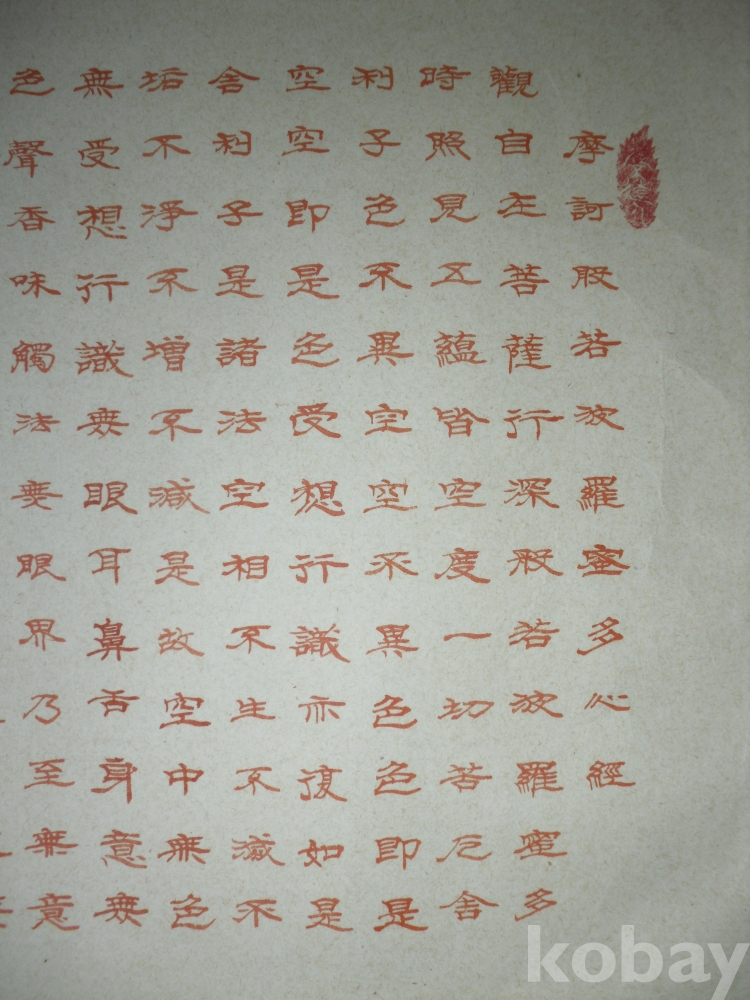 摩訶般若波羅蜜多心經
觀自在菩薩行深般若波羅蜜多
時照見五蘊皆空度一切苦厄舍
利子色不異空空不異色色即是
空空即是色受想行識亦復如是
舍利子是諸法空相不生不滅不
垢不淨不增不減是故空中無色
無受想行識無眼耳鼻舌身意無
色聲香味觸法無眼界乃至無意
kobay